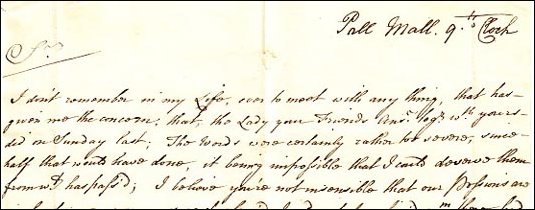 Pall Mall. 9. o Clock
Sr.
I don't remember in my Life, ever to meet with any thing, that has
given me the concern, that, the Lady your Friends Ansr. togr. wth yours
did on Sunday last; The Words were certainly rather too severe, since
half that wou'd have done, it being impossible that I cou'd deserve them
from wt. has pass'd; I believe you're not insensible that our are